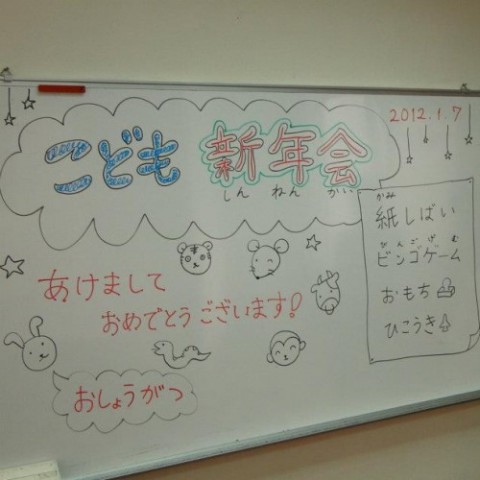 2012.1.7
こども 新年会
しん ねん かい
あけまして
おめでとうございます!
おしょうがつ
かみ
紙しばい
びんごげむ
ビンゴゲーム
おもち
ひこうき